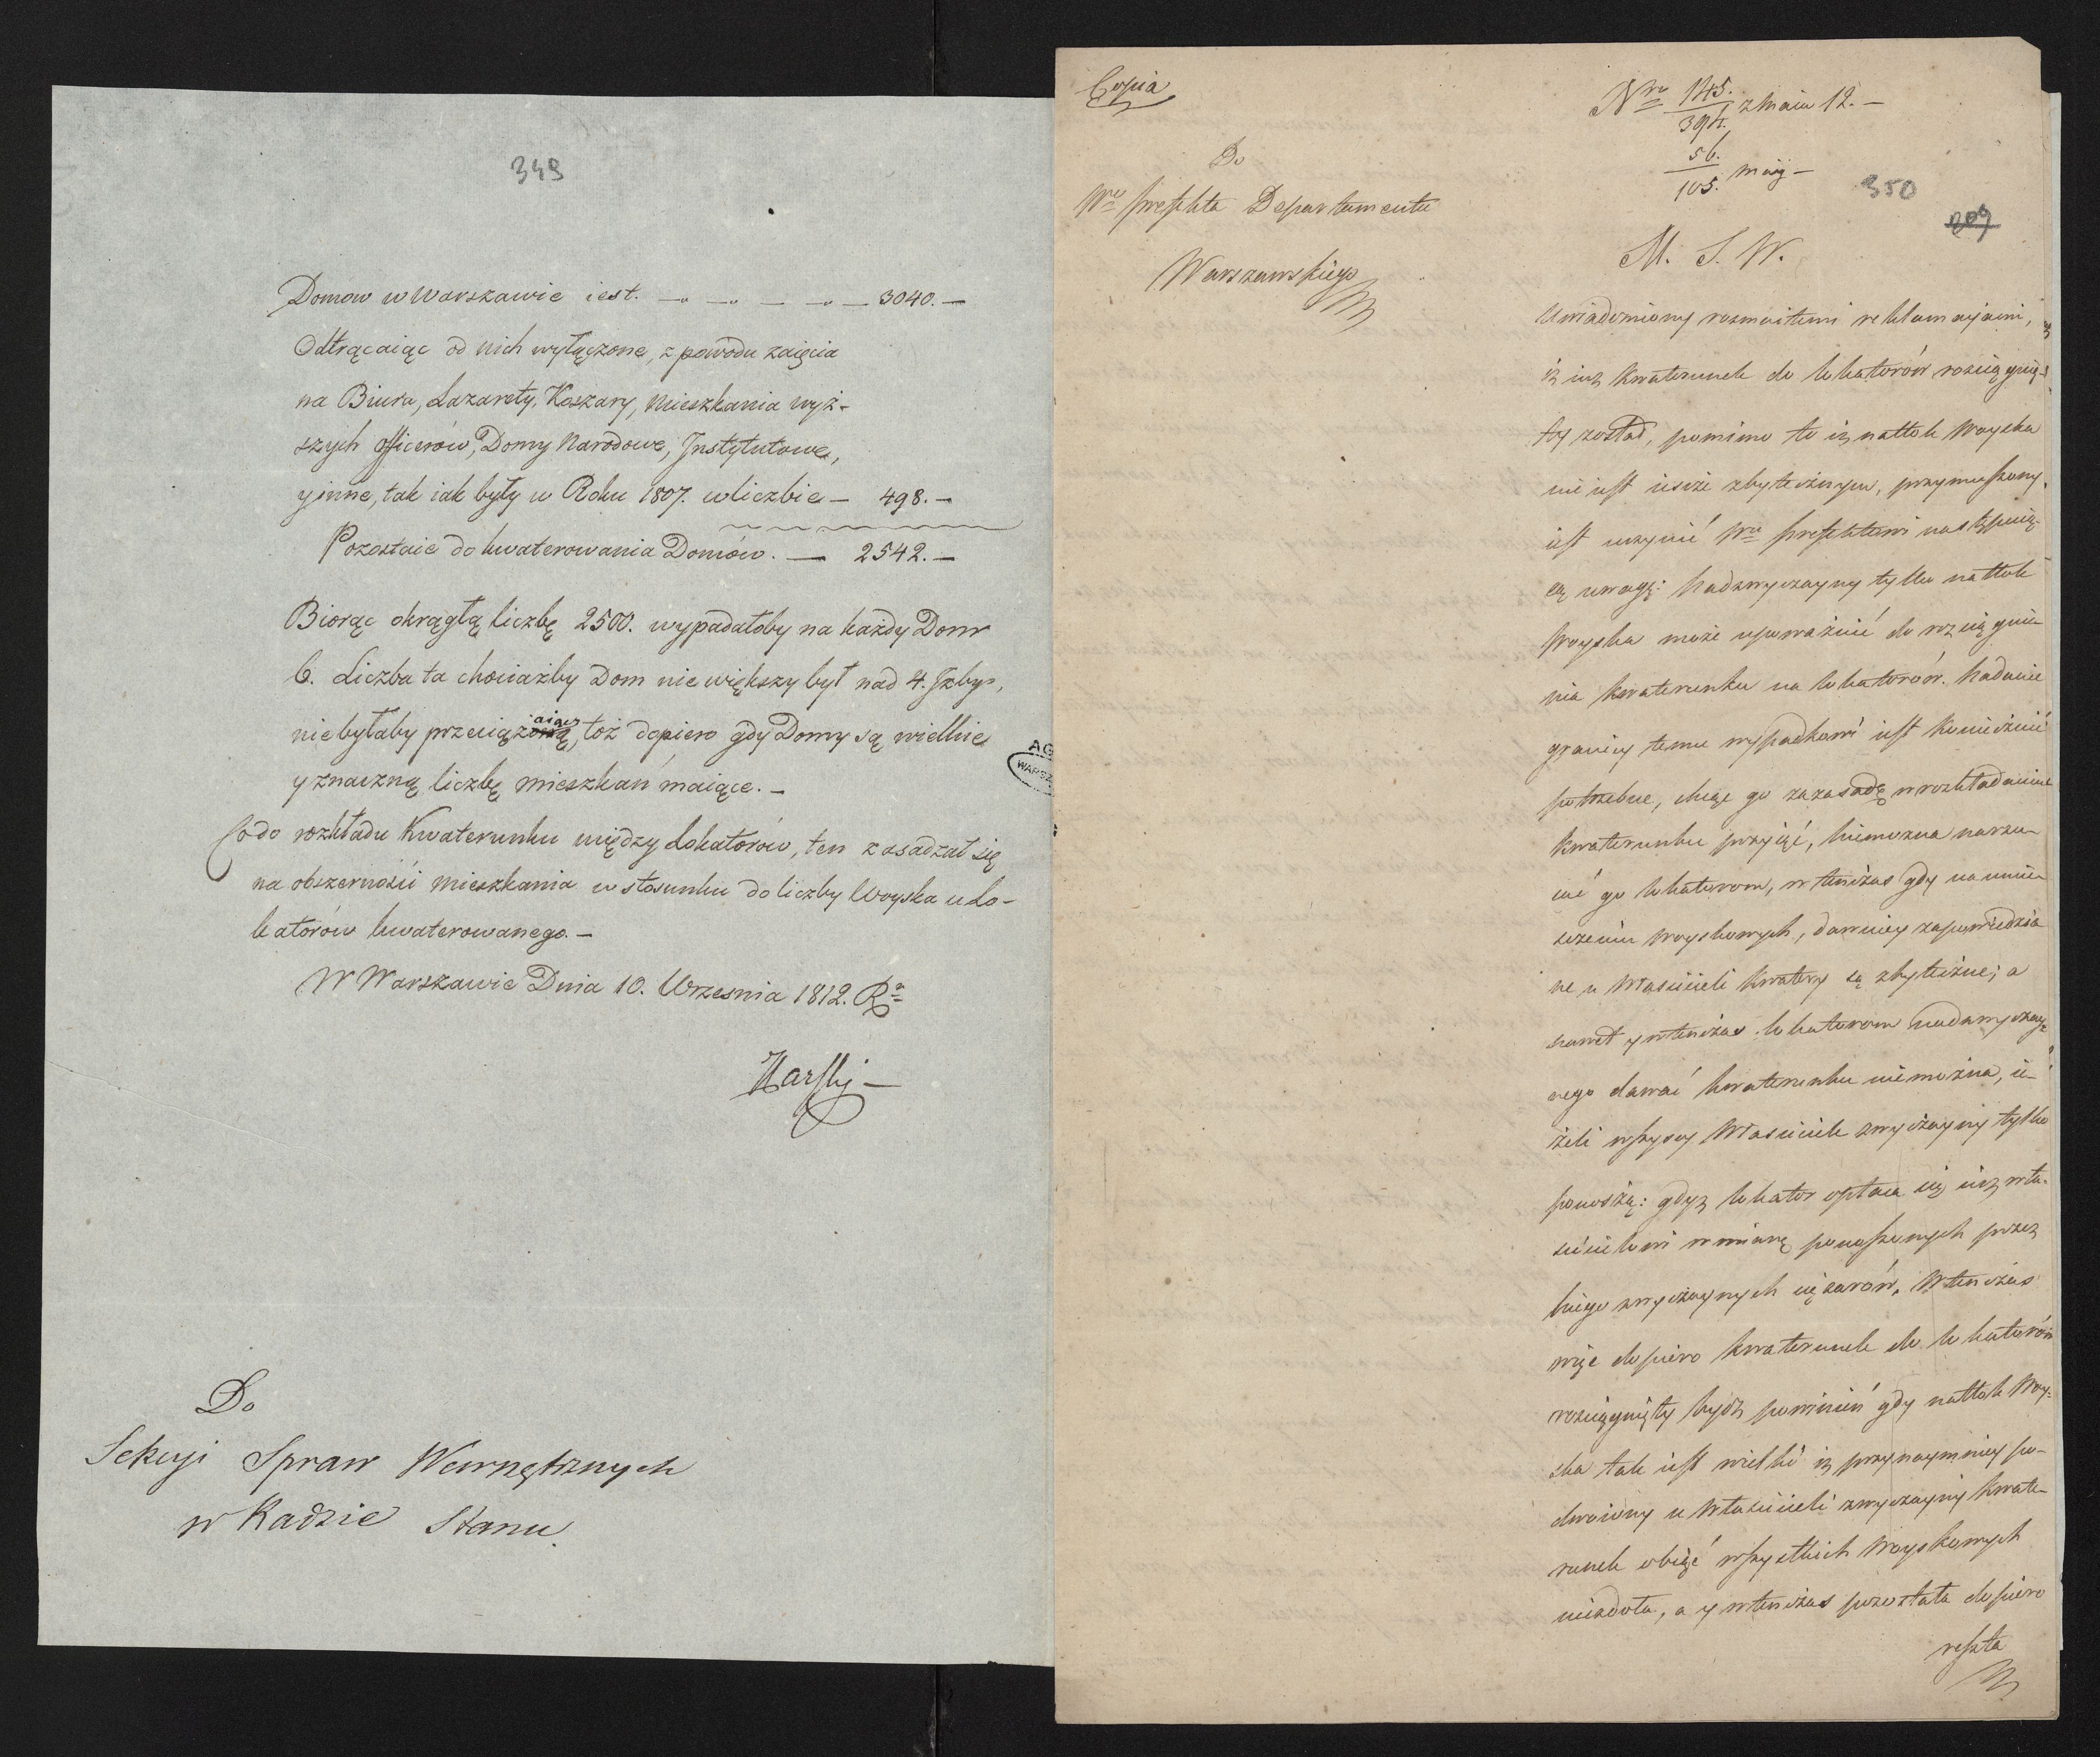 349
Domow w Warszawie iest. — „ — „ — — „ — 3040. —
Odtrącaiąc od nich wyłączone, z powodu zaięcia
na Biura, Lazarety, Koszary, Mieszkania wyż-
szych officerów, Domy Narodowe, Instytutowe,
y inne, tak iak były w Roku 1807. w liczbie — 498. —
Pozostaie do kwaterowania Domów. — 2542. —
Biorąc okrągłą liczbę 2500. wypadałoby na każdy Dom
6. Liczba ta chociażby Dom niewiększy był nad 4. Izby,
niebyłaby przeciążaiącą, toż dopiero gdy Domy są wielkie
y znaczną liczbę mieszkań maiące. —
Co do rozkładu Kwaterunku między Lokatorów, ten zasadzał się
na obszerności mieszkania w stosunku do liczby Woyska u Lo-
katorów kwaterowanego. —
W Warszawie Dnia 10. Września 1812. Ra
Do
Sekcyi Spraw Wewnętrznych
w Radzie Stanu.
AG
WARSZ
Copia
Nro 145./394. z Maia 12. —
56./105. maig —
350
209
Do
Wo Prefekta Departamentu
Warszawskiego
M. S. W.
Uwiadomiony rozmaitemi reklamacyami,
iż iuż kwaterunek do lokatorów rościągnię-
ty został, pomimo to iż natłok Woyska
nie iest ieszcze zbytecznym, przymuszony
iest uczynić Wu Prefektowi następuią-
cą uwagę: Nadzwyczayny tylko natłok
Woyska może upoważnić do rozciągnie-
nia kwaterunku na lokatorów. Nadanie
granicy temu wypadkowi iest koniecznie
potrzebne, chcąc go za zasadę w rozkładaniu
kwaterunku przyiąć, Niemożna narzu-
cić go lokatorom, w tenczas gdy na umie-
szczeniu woyskowych, dawniey zapowiedzia
ne u Właścicieli kwatery są zbyteczne; a
nawet y wtenczas lokatorom nadzwyczay-
nego dawać kwaterunku niemożna, ie-
żeli wszyscy Właściciele zwyczayny tylko
ponoszą: gdyż lokator opłaca się iuż wła-
ścicielowi w miarę ponoszonych przez
niego zwyczaynych ciężarów. Wtenczas
więc dopiero kwaterunek do lokatorów
rościągnięty bydź powinien gdy natłok Woy-
ska tak iest wielki iż przynaymniey po-
dwoiony u Właścicieli zwyczayny kwate-
runek obiąć wszystkich Woyskowych
niezdoła, a y wtenczas pozostała dopiero
reszta